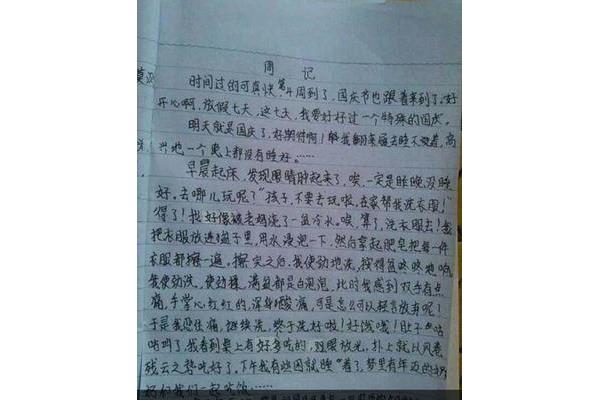 周记
时间过的可真快,第4周到了,国庆节也跟着来到了。好
开心啊,放假七天,这七天,我要好好过一个特殊的国庆。
明天就是国庆了,好期待啊!我翻来覆去睡不着,高
兴地一个晚上都没有睡好……
早晨起床,发现眼睛肿起来了,唉,一定是昨晚没睡
好。去哪儿玩呢?“孩子,不要去玩啦,在家帮我洗衣服!”
得了!我好像被老妈浇了一盆冷水。唉,算了,洗衣服去!我
把衣服放进盆子里,用水浸泡一下,然后拿起肥皂把每一件
衣服都擦一遍。擦完之后,我使劲地洗,搓得盆咚咚地响。
我使劲洗,使劲搓,满盆都是白泡泡,此时我感到双手有点
痛,手掌心红红的,浑身酸痛,可是怎么可以轻言放弃呢!
于是我忍住痛,继续洗,终于洗好啦!好饿哦!肚子咕
咕叫了,我看到桌上有好多吃的,双眼放光,扑上就以风卷
残云之势吃好了。下午我有些困就睡着了,梦里有年迈的奶
奶和我们一起吃饭……